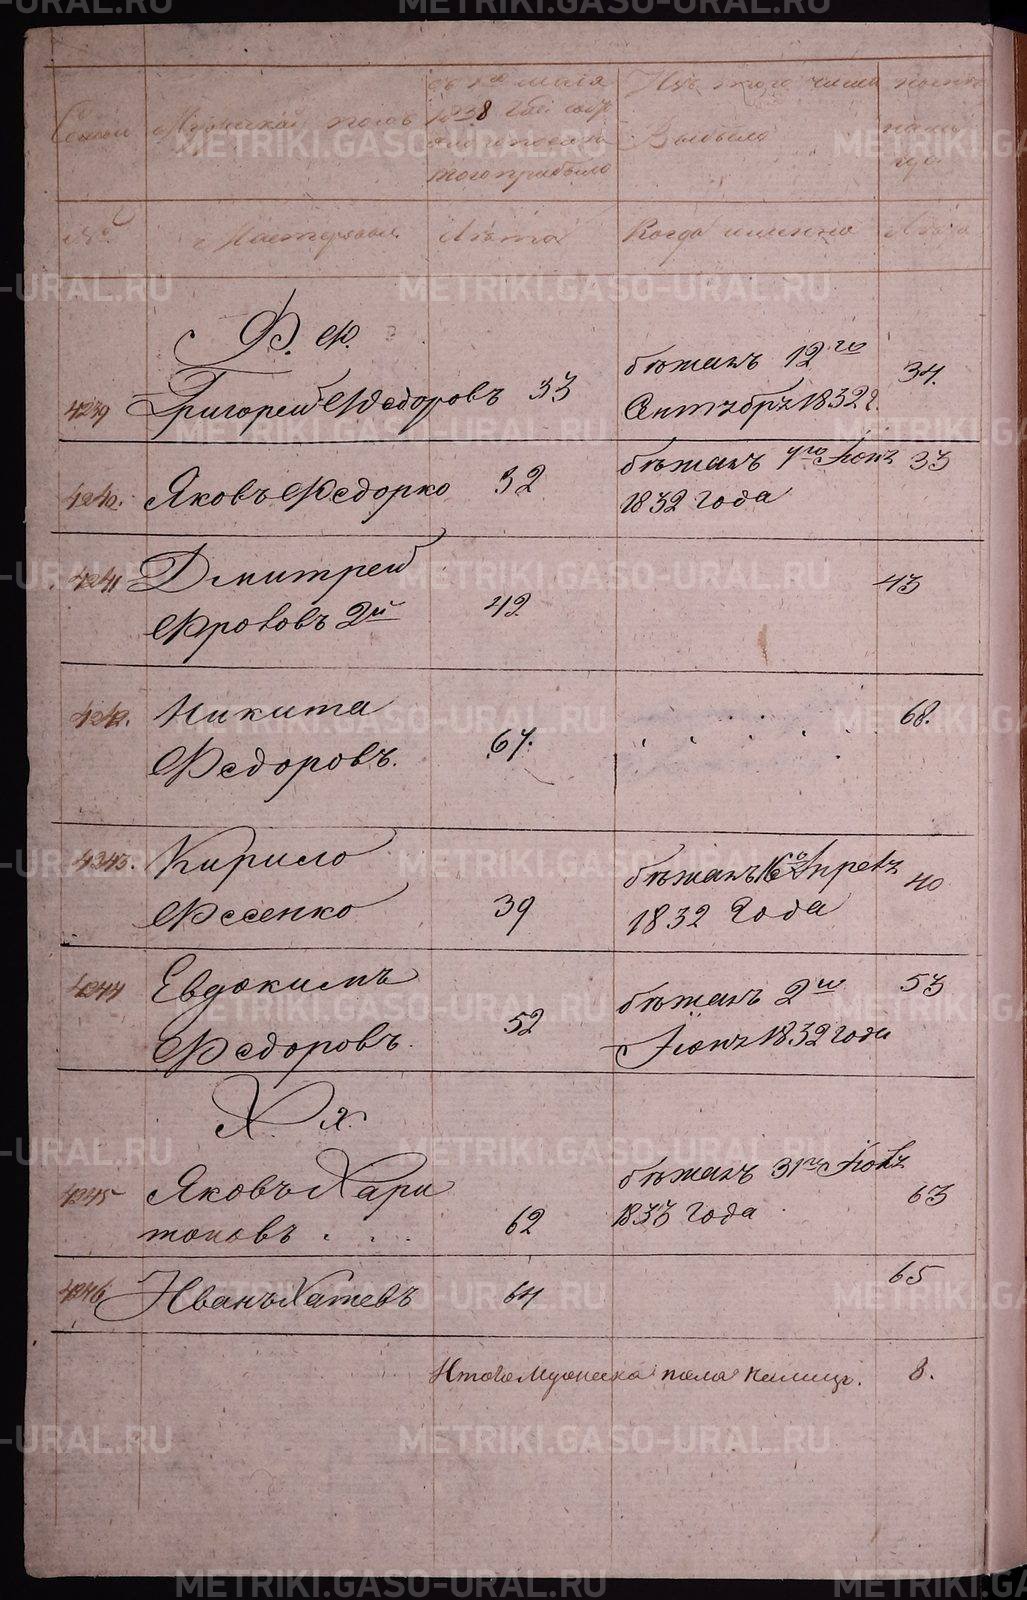 Мужескаго полу
съ 1го маія
1838 года
того прибыло
Изъ того числа
Выбыло
№
Мастеровые
Лѣта
Когда имянно
Лѣта
Ф. Ф.
4239 Григорей Федоровъ 33 бѣжалъ 12го Сентября 1832 г. 34.
4240. Яковъ Федорко 32 бѣжалъ 7го Іюня 1832 года 33
4241 Дмитрей
Фроловъ 2й 42 43
4242. Никита
Федоровъ. 67. 68.
4343. Кирило
Фесенко 39 бѣжалъ 16го Апрелъ 1832 Года 40
4244 Евдокимъ
Федоровъ. 52 бѣжалъ 2го Іюня 1832 года 53
Х. х.
4245 Яковъ Хари
тоновъ . . . 62 бѣжалъ 31го Іюля 1833 Года 63
4246 Иванъ Хатевъ 64 65
Итого Мужеска пола налицо. 8.
METRIKI.GASO-URAL.RU